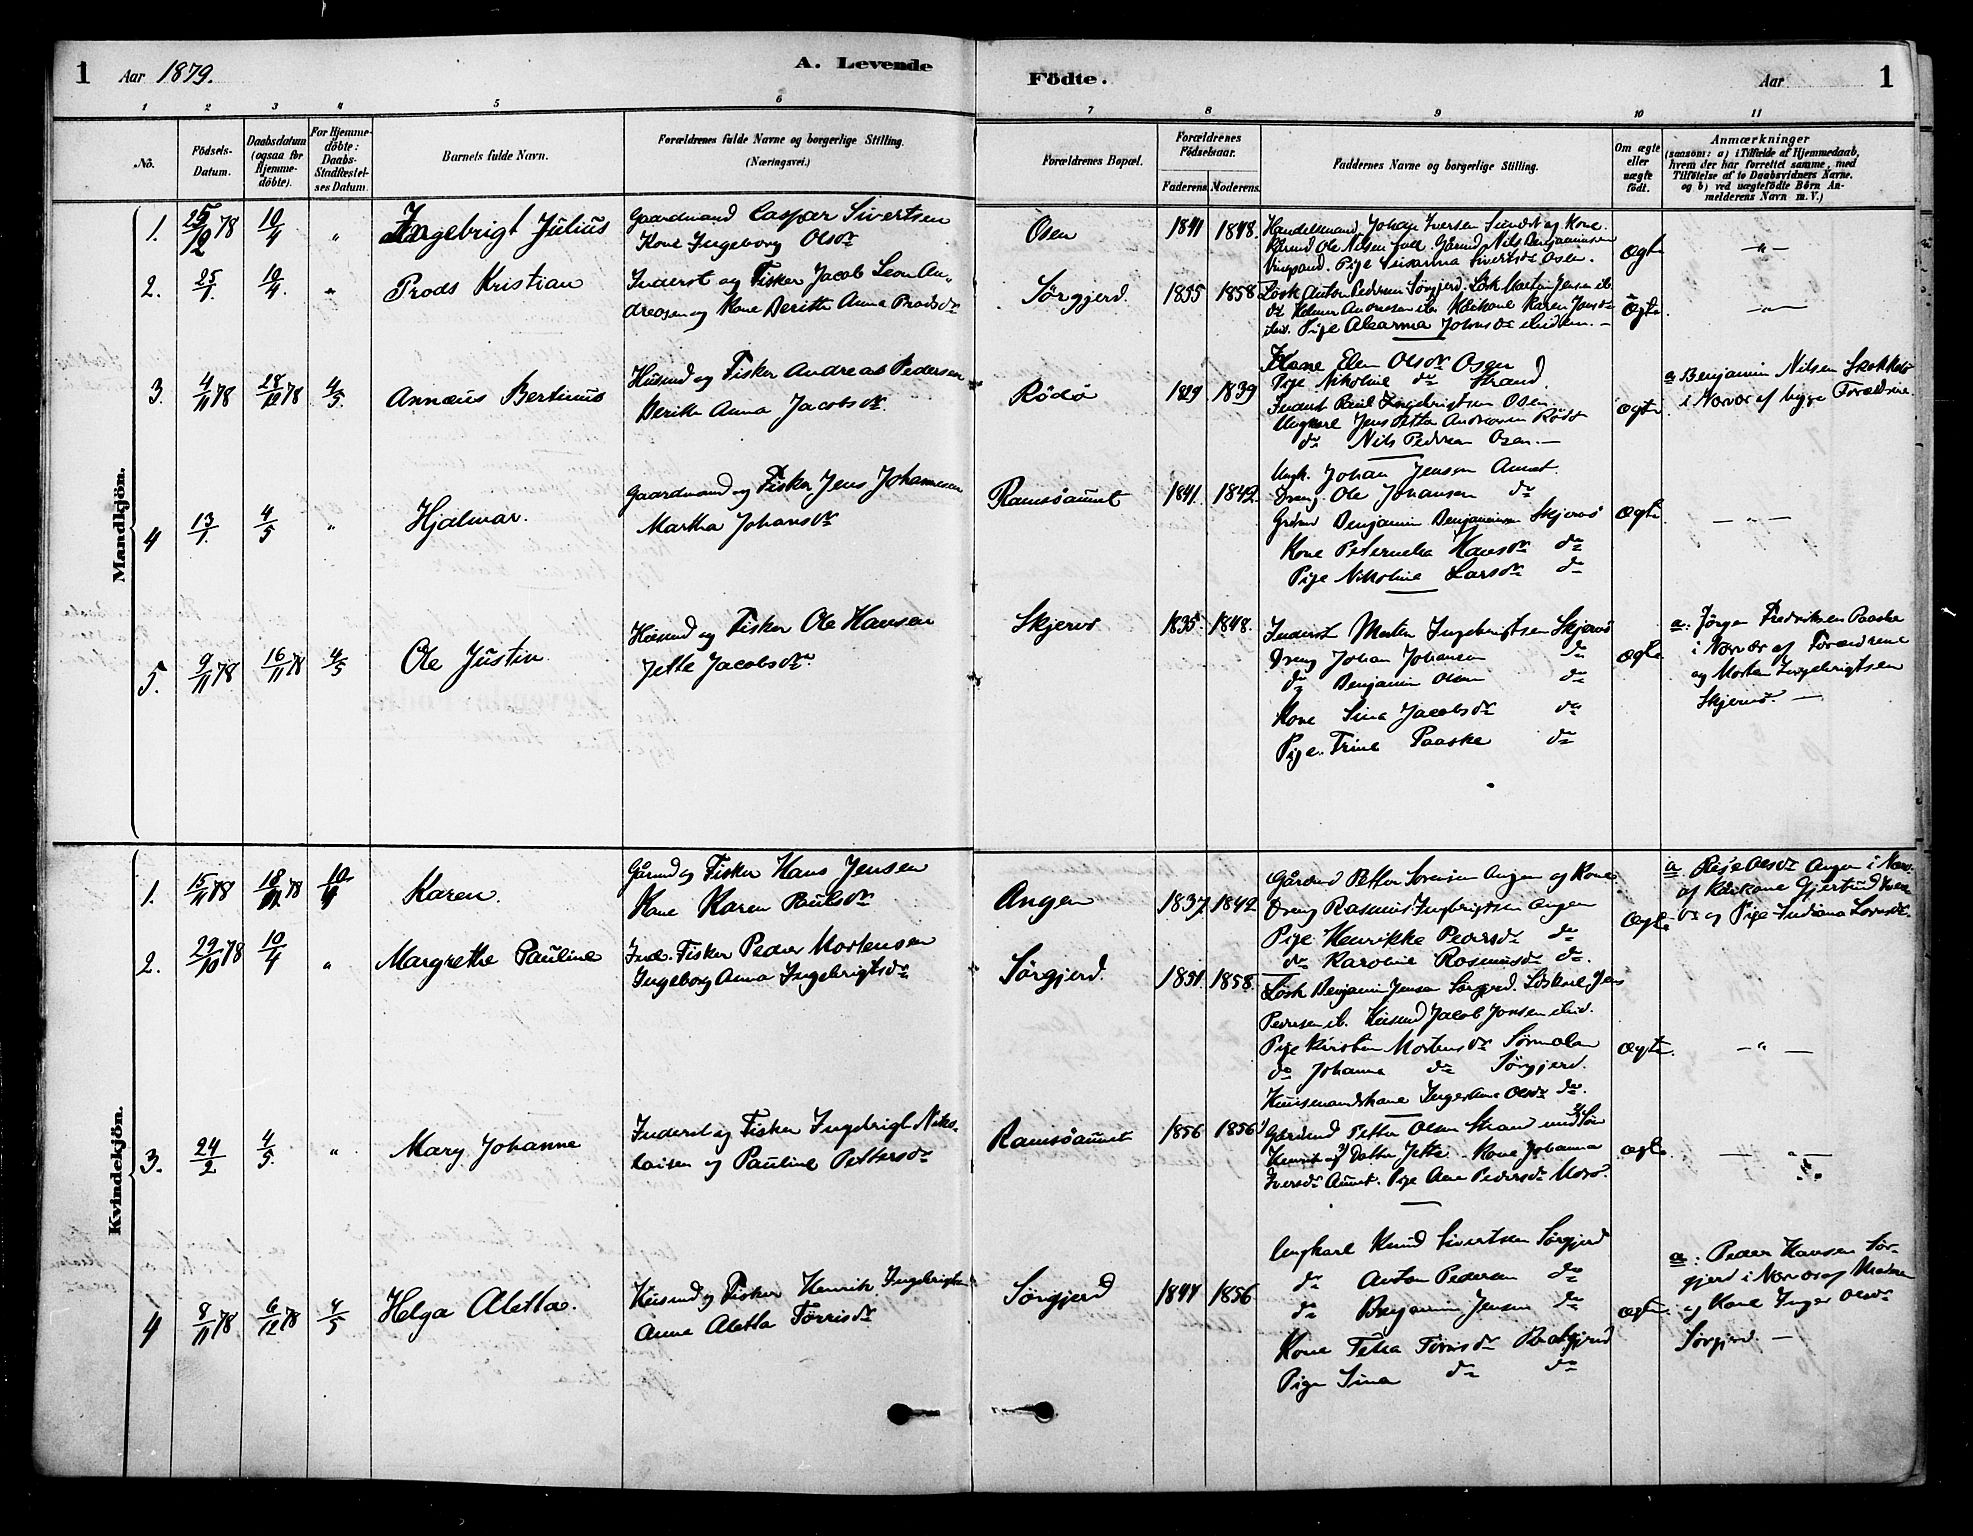 1 Aar 1879.
A. Levende Födte.
Aar 1
1 2 3 4 5 6 7 8 9 10 11
No.
Födsels-
Datum.
Daabsdatum
(ogsaa for
Hjemme-
döbte).
For Hjemme-
döbte:
Daabs-
Stadfæstel-
ses Datum.
Barnets fulde Navn.
Forældrenes fulde Navne og borgerlige Stilling.
(Næringsvei.)
Forældrenes Bopæl.
Forældrenes
Födselsaar.
Faderens. Moderens.
Faddernes Navne og borgerlige Stilling.
Om ægte
eller
uægte
födt.
Anmærkninger
(saasom: a) i Tilfælde af Hjemmedaab,
hvem der har forrettet samme, med
Tilföielse af to Daabsvidners Navne.
og b) ved uægtefödte Börn An-
melderens Navn m. V.)
Mandkjön.
1. 25/12 78 10/4 " Ingebrigt Julius
Gaardmand Caspar Sivertsen
Kone Ingeborg Olsdr
Osen 1841 1848.
Handelsmand Johan Iversen Sundet og Kone.
Gårmd Ole Nilsen Gårmd Nils Benjaminsen
Vingsand. Pige Susanna Sivertsdr Osen.
Ægte — " —
2. 25/1 10/4. " Prods Kristian
Inderst og Fisker Jacob Leon An-
dreasen og Kone Berithe Anna Prodsdr
Sörgjerd. 1835 1858
Lösk Anton Pedersen Sörgjerd. Lösk Morten Jensen ib.
Kone Karen Jensdr
ibid. Pige Alearma Johnsdr ibidem. —
Ægte — " —
3. 4/11 78 28/12 78 4/5. Annæus Bertinus
Husmd og Fisker Andreas Pedersen
Berithe Anna Jacobsdr
Rödö 1829 1839
Kone Elen Olsdr Osen
Pige Nikoline do Strand.
Inderst Paul Ingebrigtsen Osen.
Ungkarl Jens Petter Andreasen Rödö
do Nils Pedersen Osen. —
Ægte
a Benjamin Nilsen
i Nærvær af begge Forældrene
4 13/1. 4/5 " Hjalmar.
Gaardmand og Fisker Jens Johannesen
Martha Johansdr
Ramsöaunet 1841. 1842.
Ungk. Johan Jensen Aunet.
Dreng Ole Johansen do
Grdmd Benjamin Benjaminsen Skjervö
Kone Peternelia Hansdr do
Pige Nikoline Larsdr do
Ægte. — " —
5. 9/11 78 16/11 78 4/5 Ole Justin
Husmd og Fisker Ole Hansen
Jette Jacobsdr
Skjervö 1835. 1848.
Inderst Morten Ingebrigtsen Skjervö
Dreng Johan Johansen do
do Benjamin Olsen do
Kone Sina Jacobsdr do
Pige. Trine Paaske do
ægte
a: Jörgen Fredriksen Paaske
i Nærvær af Forældrene
og Morten Ingebrigtsen
Skjervö. —
Kvindekjön.
1. 15/11 78 18/11 78 10/4 Karen.
Gårmd og Fisker Hans Jensen
Kone Karen Paulsdr
Angen 1837. 1842
Gårdmd Petter Sörensen Angen og Kone
Dreng Rasmus Ingebrigtsen Angen
Pige Henrikke Pedersdr do
do Karoline Rasmusdr do.
Ægte
a. Olsdr Angen i Nærv.
af Kårkone Gjertrud
og Pige Indiana
2. 29/10 78 10/4 " Margrethe Pauline
Inds. Fisker Peder Mortensen
Ingeborg Anna Ingebrigtsdr
Sörgjerd. 1831. 1858.
Lösk Benjamin Jensen Sörgjerd. Jens
Pedersen ib. Husmd Jacob Jonsen ibid.
Pige Kirsten Mortensdr Sörmelan
do Johanna do Sörgjerd.
Husmandskone Inger Olsdr do.
Ægte. — " —
3. 24/2 4/5. " Mary Johanne
Inderst og Fisker Ingebrigt Niko-
laisen og Pauline Pettersdr
Ramsöaunet 1856 1856
Gårdmd Petter Olsen Strand med Sön
Henrik og Datter Jette. Kone Johanna
Iversdr Aunet. Pige Ane Pedersdr
ægte — " —
4 8/11 78 6/12 78 4/5 Helga Aletta.
Husmd og Fisker Henrik Ingebrigtsen
Anne Aletta Törrisdr
Sörgjerd 1844 1856
Ungkarl Knud Sivertsen Sörgjerd
do Anton Pedersen do
do Benjamin Jensen do
Kone Petra Törrisdr
Pige Sina do do
ægte.
a: Peder Hansen Sör-
gjerd i Nærvær af
og Kone Inger Olsdr
Sörgjerd. —